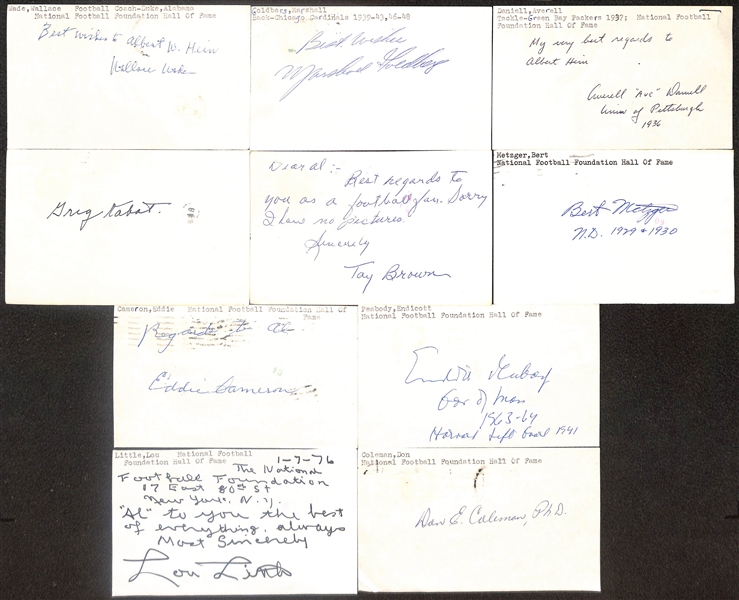 Wade, Wallace Football Coach-Duke, Alabama
National Football Foundation Hall Of Fame
Best Wishes to Albert W. Hein
Wallace Wade
Goldberg, Marshall
Back-Chicago Cardinals 1939-43,46-48
Best Wishes
Marshall Goldberg
Daniell, Averell
Tackle-Green Bay Packers 1937; National Football
Foundation Hall Of Fame
My very best regards to
Albert Hein
Averell "Ave" Daniell
Univ of Pittsburgh
1936
Greg Kabat.
Dear al:-
Best regards to
you as a football fan. Sorry
I have no pictures.
Sincerely
Tay Brown
Metzger, Bert
National Football Foundation Hall Of Fame
Bert Metzger
N.D. 1929 + 1930
Cameron, Eddie National Football Foundation Hall Of
Fame
Regards to Al
Eddie Cameron
Peabody, Endicott
National Football Foundation Hall Of Fame
Endicott Peabody
Gov of Mass
1963-64
Harvard Left Guard 1941
Little, Lou National Football
Foundation Hall Of Fame
1-7-76
The National
Football Foundation
17 East 80th St
New York, N.Y.
"Al" to you the best
of everything, always
Most Sincerely
Lou Little
Coleman, Don
National Football Foundation Hall Of Fame
Don E. Coleman, Ph.D.